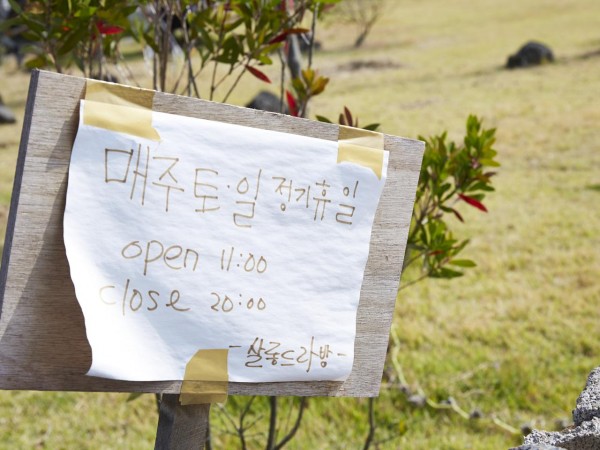 매주 토·일 정기휴일
open 11:00
close 20:00
- 살롱드라방 -